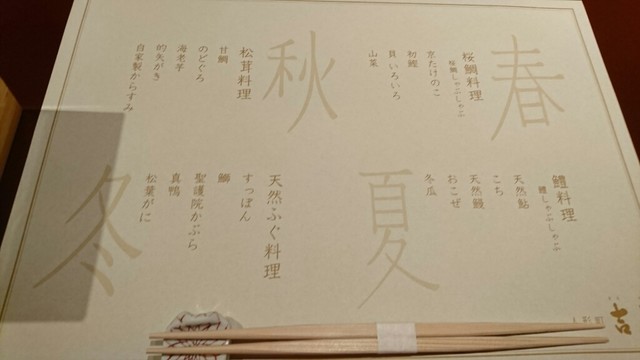 春
桜鯛料理
桜鯛しゃぶしゃぶ
京たけのこ
初鰹
貝いろいろ
山菜
夏
鱧料理
鱧しゃぶしゃぶ
天然鮎
こち
天然鰻
おこぜ
冬瓜
秋
松茸料理
甘鯛
のどぐろ
海老芋
的矢がき
自家製からすみ
冬
天然ふぐ料理
すっぽん
鰤
聖護院かぶら
真鴨
松葉がに
吉